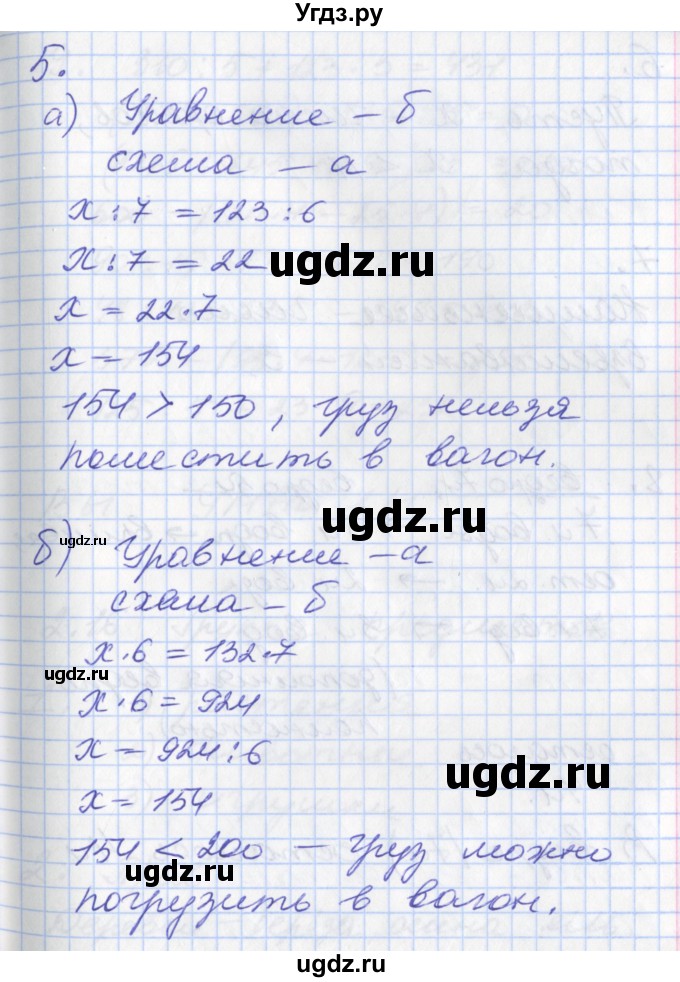 Угдз.ру
5.
а) Уравнение – б
схема – а
x : 7 = 123 : 6
x : 7 = 22
ugdz.ru
x = 22 · 7
x = 154
154 > 150, груз нельзя
поместить в вагон.
ugdz.ru
ugdz.ru
б) Уравнение – а
схема – б
x · 6 = 132 · 7
ugdz.ru
x · 6 = 924
x = 924 : 6
ugdz.ru
x = 154
154 < 200 – груз можно
ugdz.ru
погрузить в вагон.
ugdz.ru